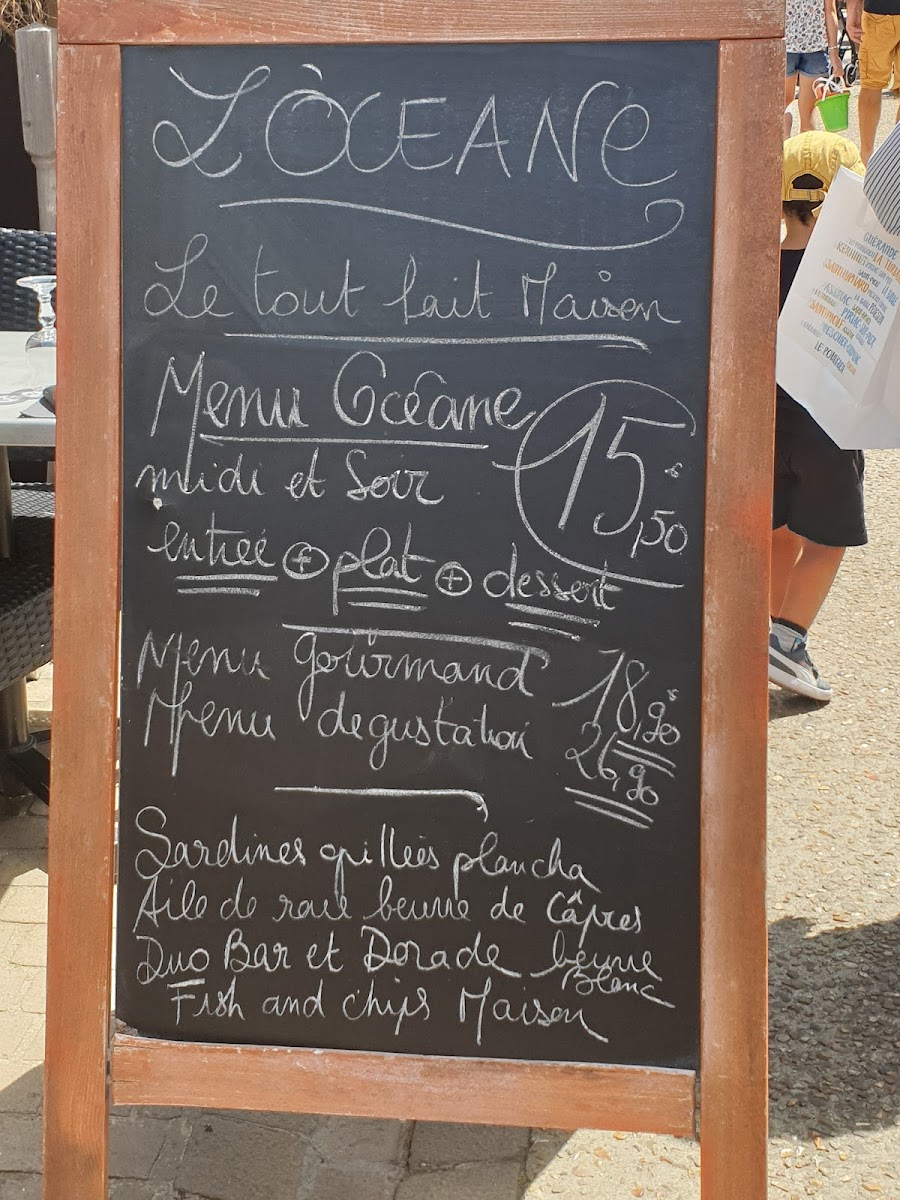 L'ÒCEANE
Le tout fait Maison
Menu Océane
15€,50
midi et Soir
entrée + plat + dessert
Menu gourmand 18,90
Menu degustation 26,90
Sardines grillées plancha
Aile de raie beurre de câpres
Duo Bar et Dorade beurre
Blanc
Fish and chips Maison
GUÉRANDE
LE POULIGUEN